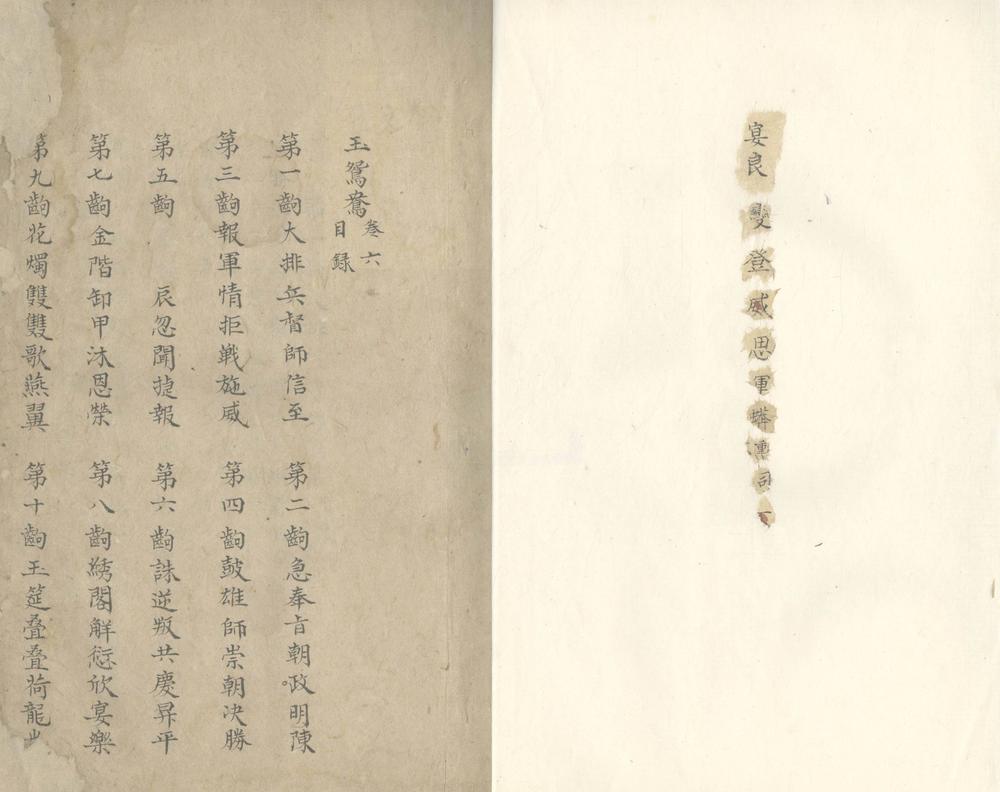 宴良燮登威思軍
司
玉鴛鴦卷六
目録
第一齣大排兵督師信至
第二齣急奉旨朝政明陳
第三齣報軍情拒戦施威
第四齣鼓雄師崇朝决勝
第五齣　　辰忽聞捷報
第六齣誅逆叛共慶昇平
第七齣金階卸甲沐恩榮
第八齣綉閣解愆欣宴樂
第九齣花燭雙雙歌燕翼
第十齣玉筵叠叠荷龍